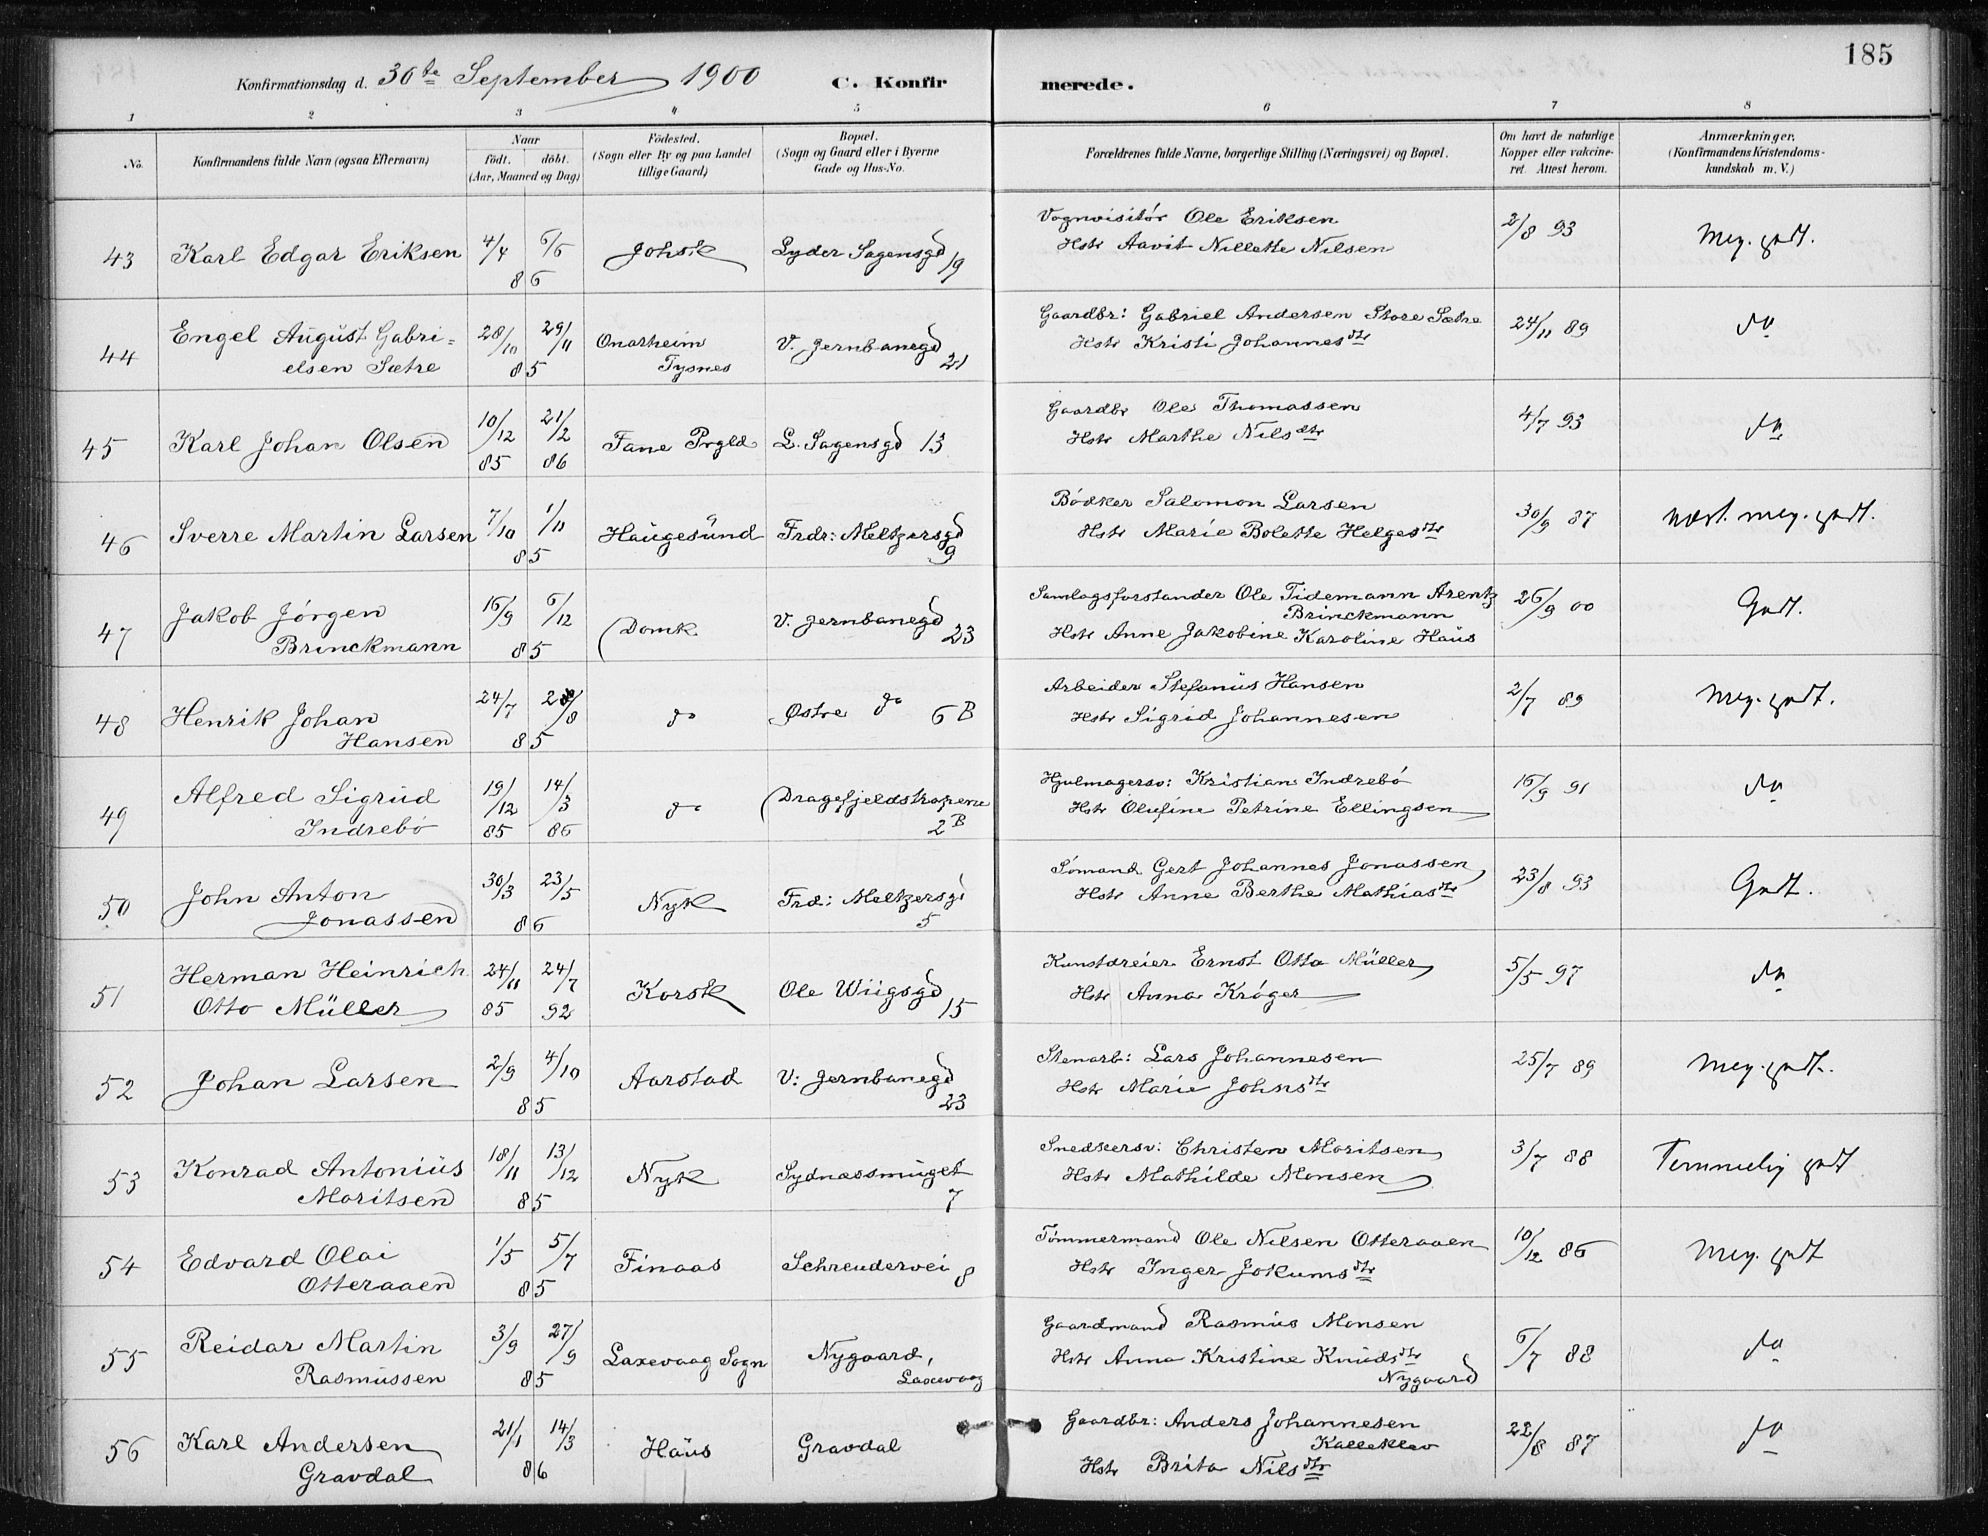 185
Konfirmationsdag d. 30te September 1900 C. Konfir merede.
1 2 3 4 5 6 7 8
No. Konfirmandens fulde Navn (ogsaa Efternavn) Naar födt. döbt. (Aar, Maaned og Dag) Födested. (Sogn eller By og paa Landet tillige Gaard) Bopæl. (Sogn og Gaard eller i Byerne Gade og Hus-No. Forældrenes fulde Navne, borgerlige Stilling (Næringsvei) og Bopæl. Om havt de naturlige Kopper eller vakcine- ret. Attest herom. Anmærkninger. (Konfirmandens Kristendoms- kundskab m. V.)
43 Karl Edgar Eriksen 4/4 6/6 86 Johsk Lyder Sagensgd 19 Vognvisitør Ole Eriksen 2/8 93 Meg. godt.
Hstr Aavit Nillette Nilsen
44 Engel August Gabri= 28/10 29/11 85 Onarheim V. Jernbanegd 21 Gaardbr: Gabriel Andersen Store Sætre 24/11 89 do
elsen Sætre Tysnes Hstr Kristi Johannesdtr
45 Karl Johan Olsen 10/12 85 21/2 86 Fane Prgld L. Sagensgd 13 Gaardbr Ole Thomassen 4/7 93 do
Hstr Marthe Nilsdtr
46 Sverre Martin Larsen 7/10 1/11 85 Haugesund Frdr: Meltzersgd 9 Bødker Salomon Larsen 30/9 87 næst. meg. godt.
Hstr Marie Bolette Helgesdtr
47 Jakob Jørgen 16/9 6/12 85 Domk V. Jernbanegd 23 Samlagsforstander Ole Tidemann Arentz 26/9 00 Godt.
Brinckmann Brinckmann
Hstr Anne Jakobine Karoline Haus
48 Henrik Johan 24/7 /8 85 do Østre do 6 B Arbeider Stefanus Hansen 2/7 89 Meg. godt.
Hansen Hstr Sigrid Johannesen
49 Alfred Sigrud 19/12 85 14/3 86 do Dragefjeldstrapene 2B Hjulmagersv: Kristian Indrebø 16/9 91 do
Indrebø Hstr Olufine Petrine Ellingsen
50 John Anton 30/3 23/5 86 Nyk Frd: Meltzersgd 5 Sømand Gert Johannes Jonassen 23/8 93 Godt.
Jonassen Hstr Anne Berthe Mathiasdtr
51 Herman Heinrich 24/11 85 24/7 92 Korsk Ole Wiigsgd 15 Kunstdreier Ernst Otto Müller 5/5 97 do
Otto Müller Hstr Anna Krøger
52 Johan Larsen 2/9 4/10 85 Aarstad V: Jernbanegd 23 Stenarb: Lars Johannesen 25/7 89 Meg. godt.
Hstr Marie Johnsdtr
53 Konrad Antonius 18/11 13/12 85 Nyk Sydnæssmuget 7 Snedkersv: Christen Moritsen 3/7 88 Temmelig godt
Moritsen Hstr Mathilde Monsen
54 Edvard Olai 1/5 5/7 85 Finaas Schreudervei 8 Tømmermand Ole Nilsen Otteraaen 10/12 86 Meg. godt
Otteraaen Hstr Inger Jokumsdtr
55 Reidar Martin 3/9 27/9 85 Laxevaag Sogn Nygaard, Laxevaag Gaardmand Rasmus Monsen 6/7 88 do
Rasmussen Hstr Anna Kristine Knudsdtr
Nygaard
56 Karl Andersen 21/1 14/3 86 Haus Gravdal Gaardbr: Anders Johannesen 22/8 87 do
Gravdal Kalleklev
Hstr Brita Nilsdtr